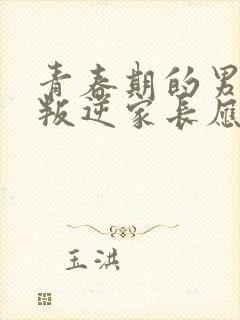 青春期的男
叛逆家长应
玉洪